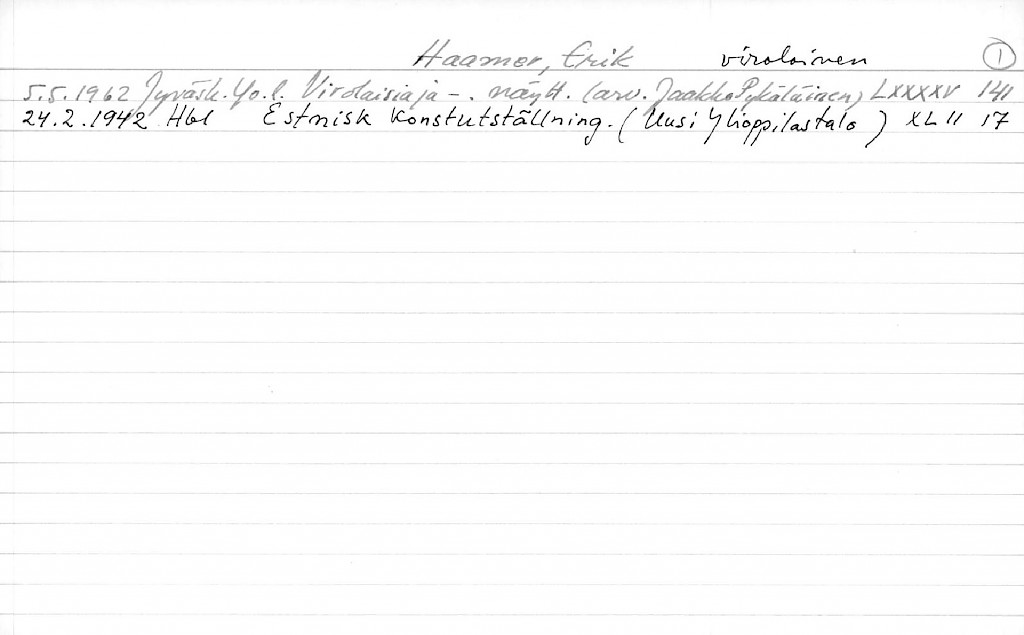 Haamer, Erik virolainen 1
5.5.1962 Jyväsk. Yo.l. Virolaisia ja -. näytt. (arv. Jaakko Pykäläinen) LXXXXV 141
24.2.1942 Hbl Estnisk konstutställning. (Uusi Ylioppilastalo) XLII 17